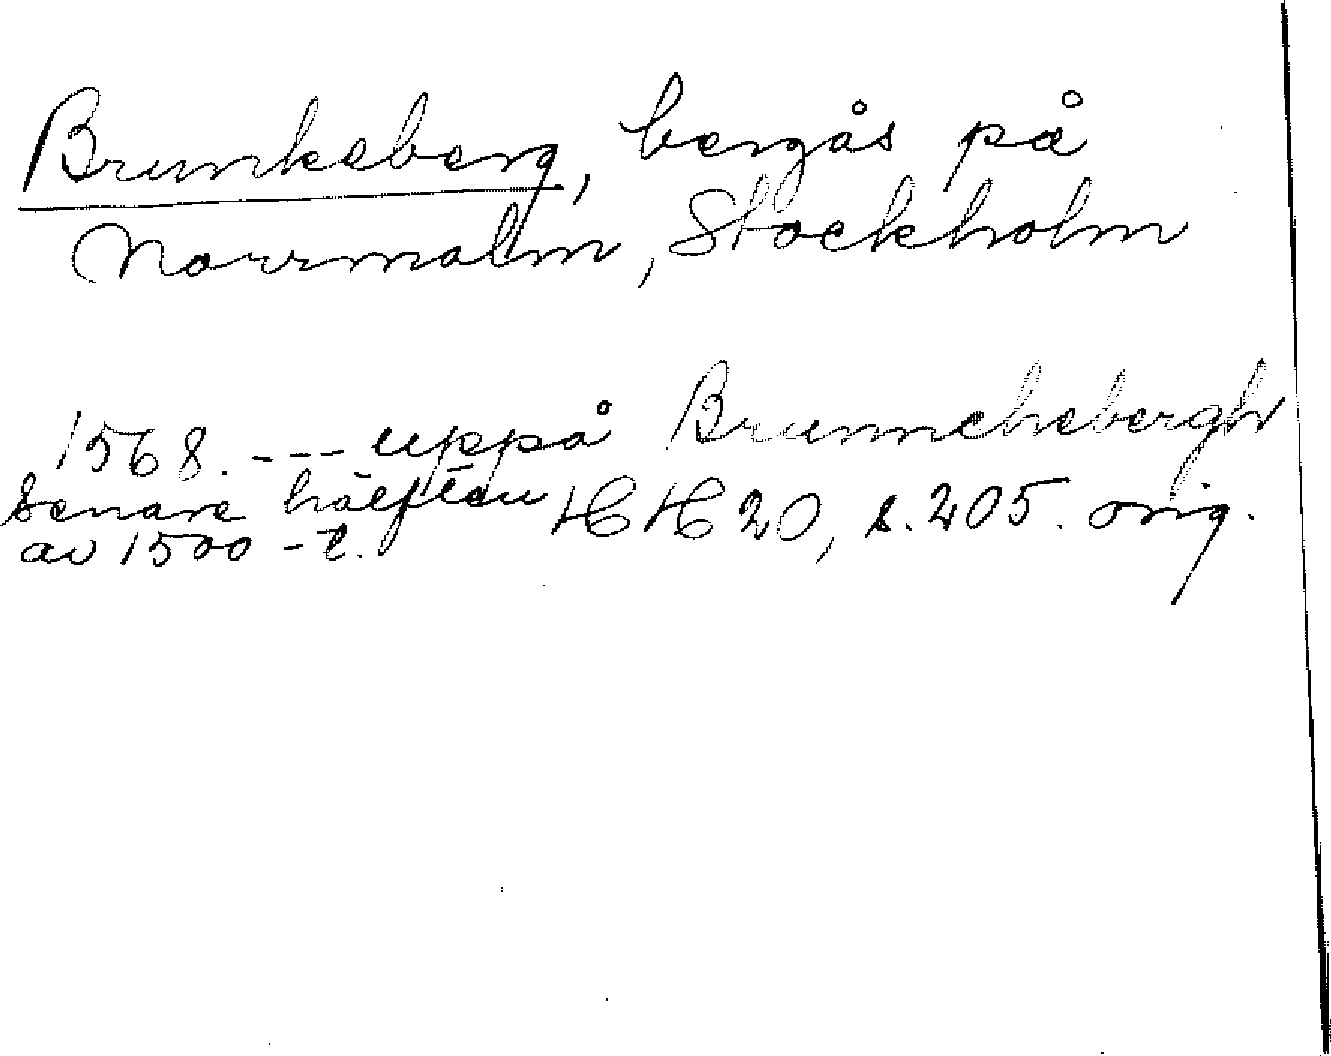 Brunkeberg, bergås på
Norrmalm, Stockholm
1568. --- uppå Brunnchebergh
senare hälften HH 20, s. 205. orig.
av 1500-t.